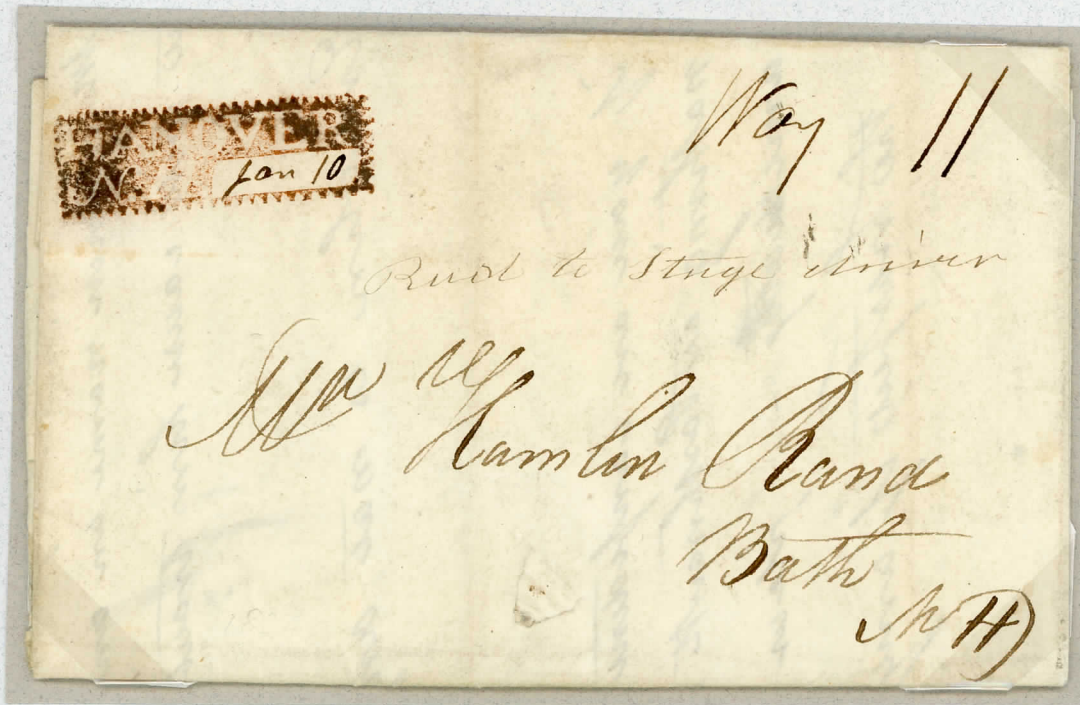 HANOVER
N. H. Jan 10
Way 11
to Stage driver
Mr Hamlin Rand
Bath
N H